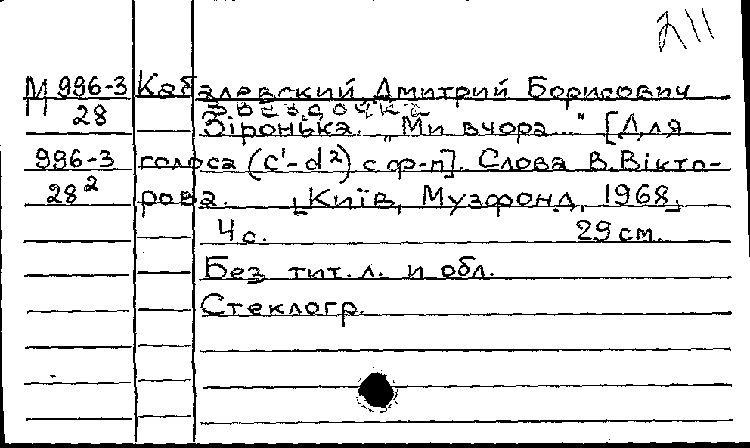 211
М 996-3 Кабалевский Дмитрий Борисович
28 Звездочка
Зіронька. „Ми вчора..." [Для
996-3 голоса (c¹-d²) с ф-п]. Слова В.Вікто-
28² рова. [Київ, Музфонд, 1968]
4 с. 29 см.
Без тит. л. и обл.
Стеклогр.